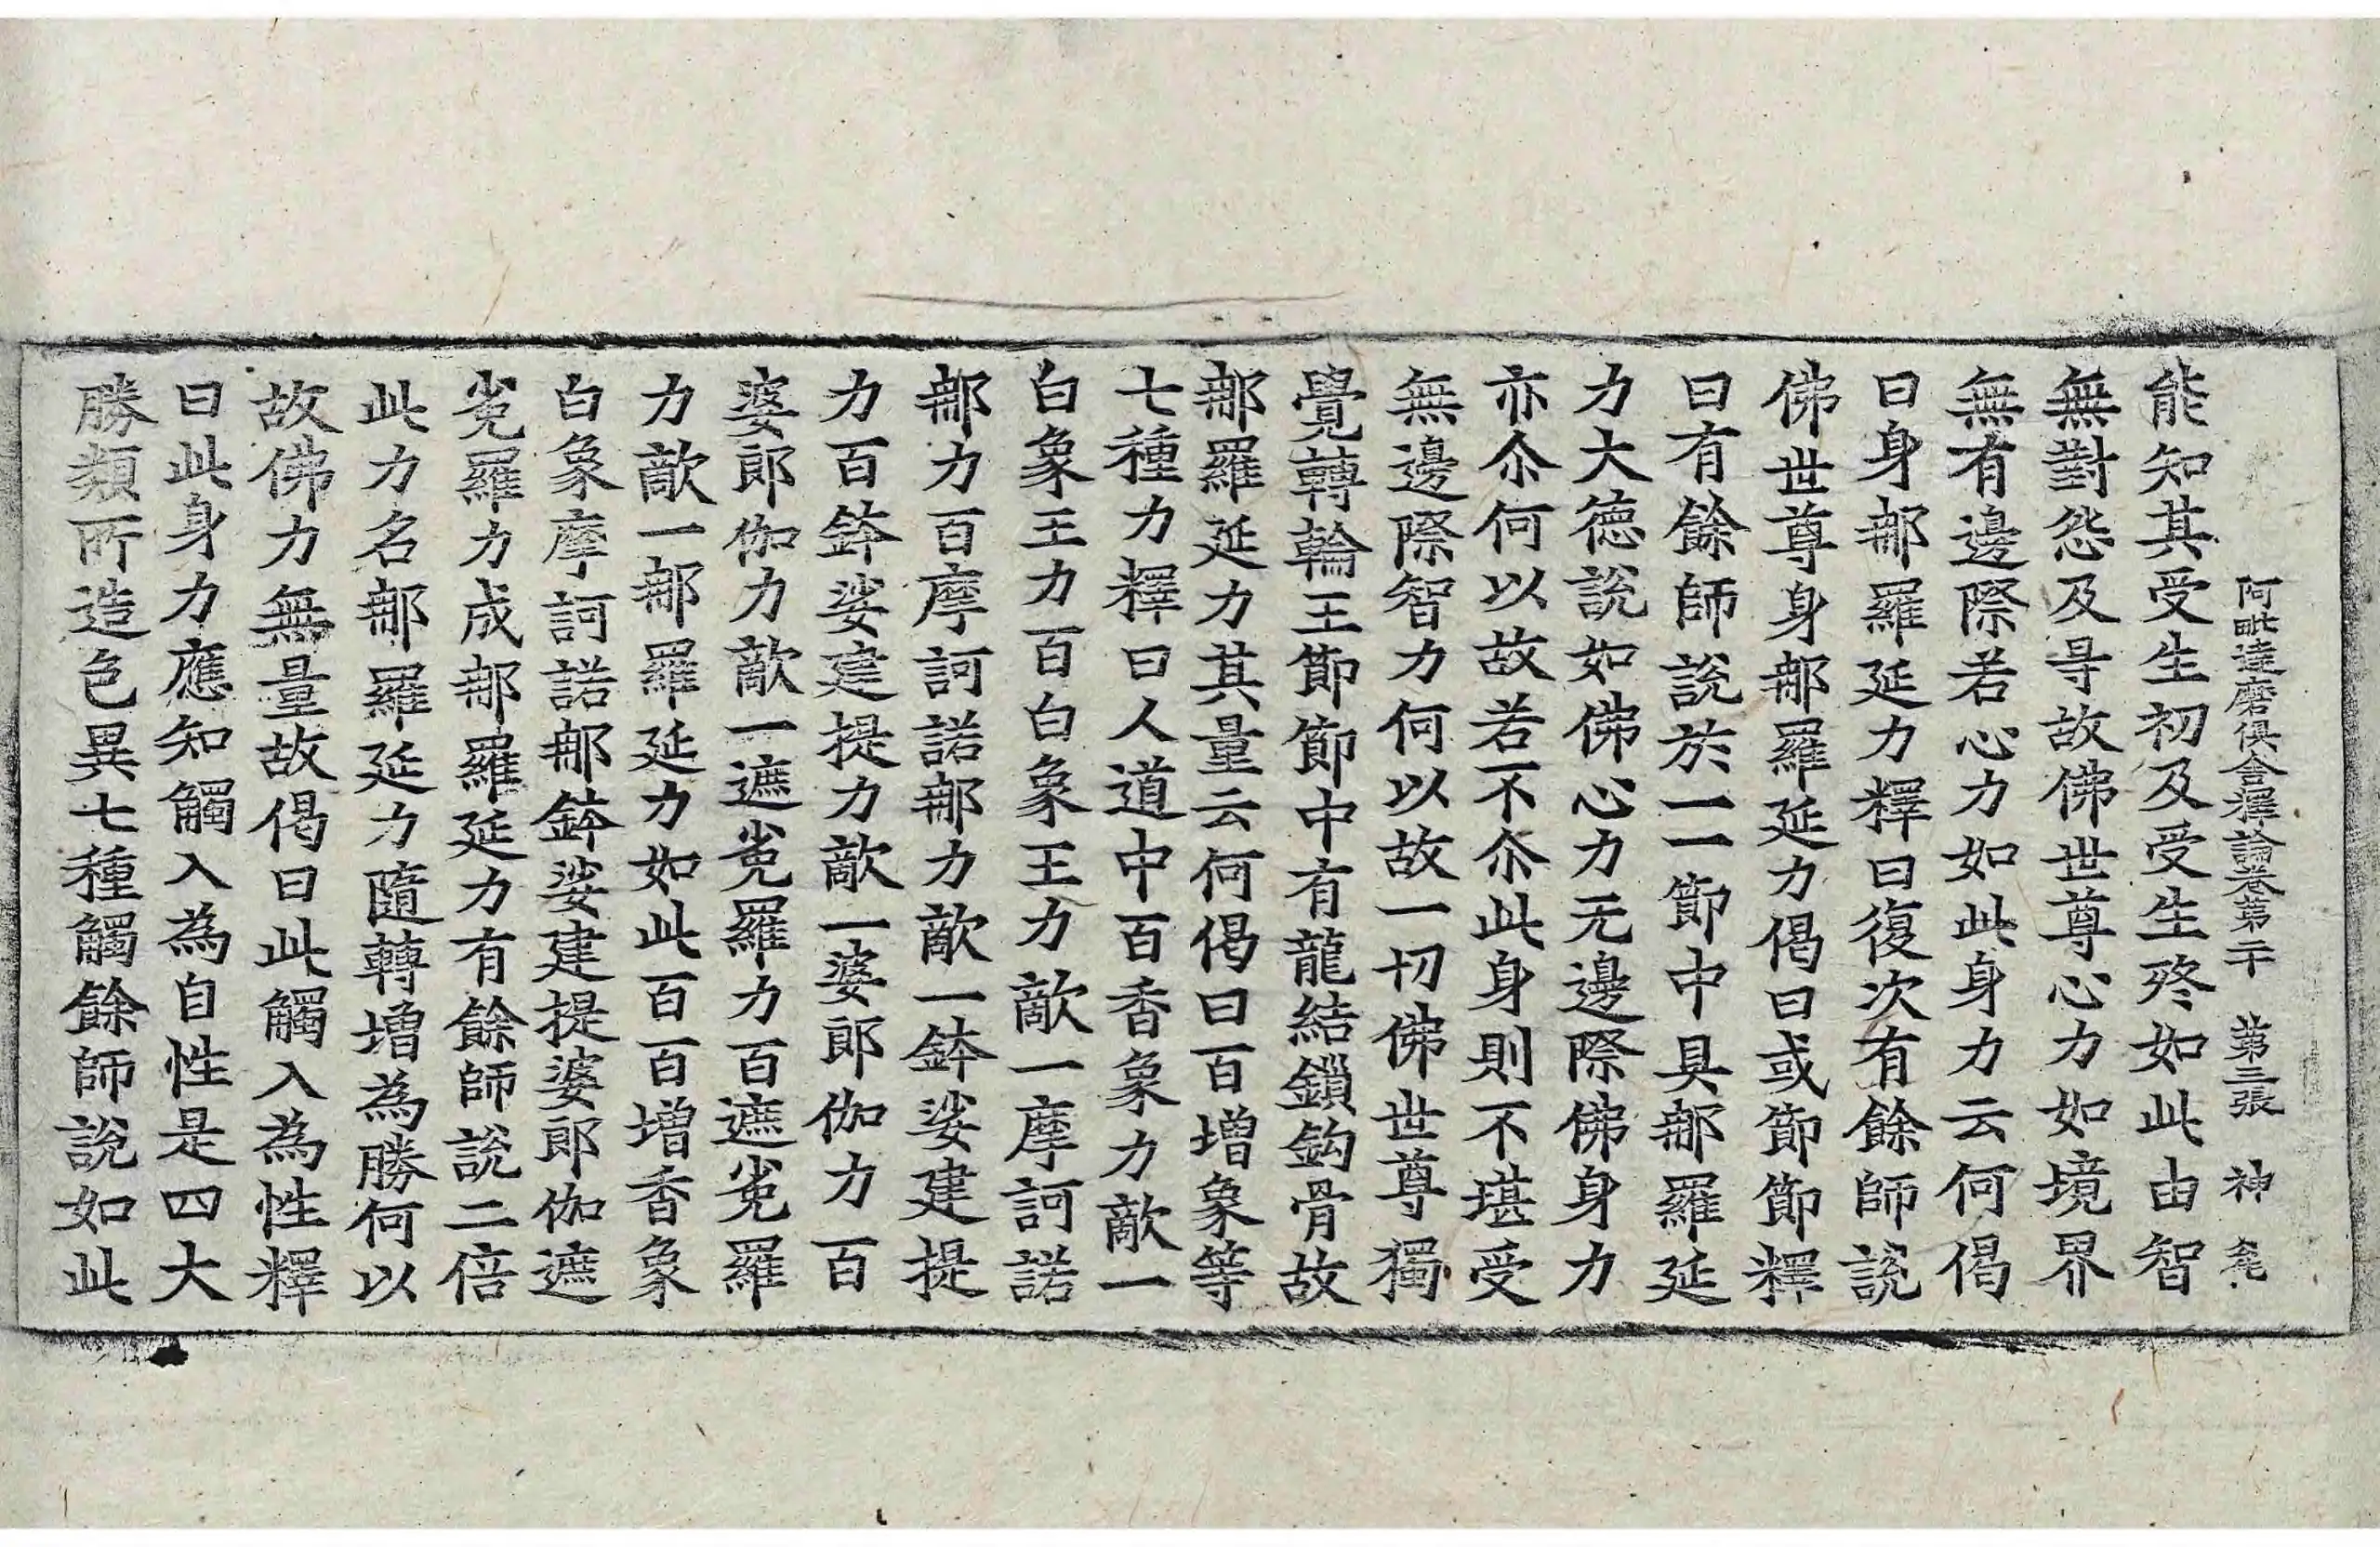 阿毗達磨俱舍釋論卷第二十 第三張 神
能知其受生初及受生終如此由智
無對怨及㝵故佛世尊心力如境界
無有邊際若心力如此身力云何偈
曰身那羅延力釋曰復次有餘師說
佛世尊身那羅延力偈曰或節節釋
曰有餘師說於一一節中具那羅延
力大德說如佛心力无邊際佛身力
亦尒何以故若不尒此身則不堪受
無邊際智力何以故一切佛世尊獨
覺轉輪王節節中有龍結鎖鈎骨故
那羅延力其量云何偈曰百增象等
七種力釋曰人道中百香象力敵一
白象王力百白象王力敵一摩訶諾
那力百摩訶諾那力敵一鉢娑建提
力百鉢娑建提力敵一婆郎伽力百
婆郎伽力敵一遮㝹羅力百遮㝹羅
力敵一那羅延力如此百百增香象
白象摩訶諾那鉢娑建提婆郎伽遮
㝹羅力成那羅延力有餘師說二倍
此力名那羅延力隨轉增為勝何以
故佛力無量故偈曰此觸入為性釋
曰此身力應知觸入為自性是四大
勝類所造色異七種觸餘師說如此